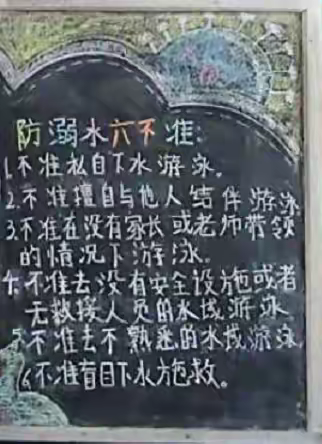 防溺水六不准:
1.不准私自下水游泳。
2.不准擅自与他人结伴游泳
3.不准在没有家长或老师带领
的情况下游泳。
4.不准去没有安全设施或者
无救援人员的水域游泳
5.不准去不熟悉的水域游泳
6.不准盲目下水施救。